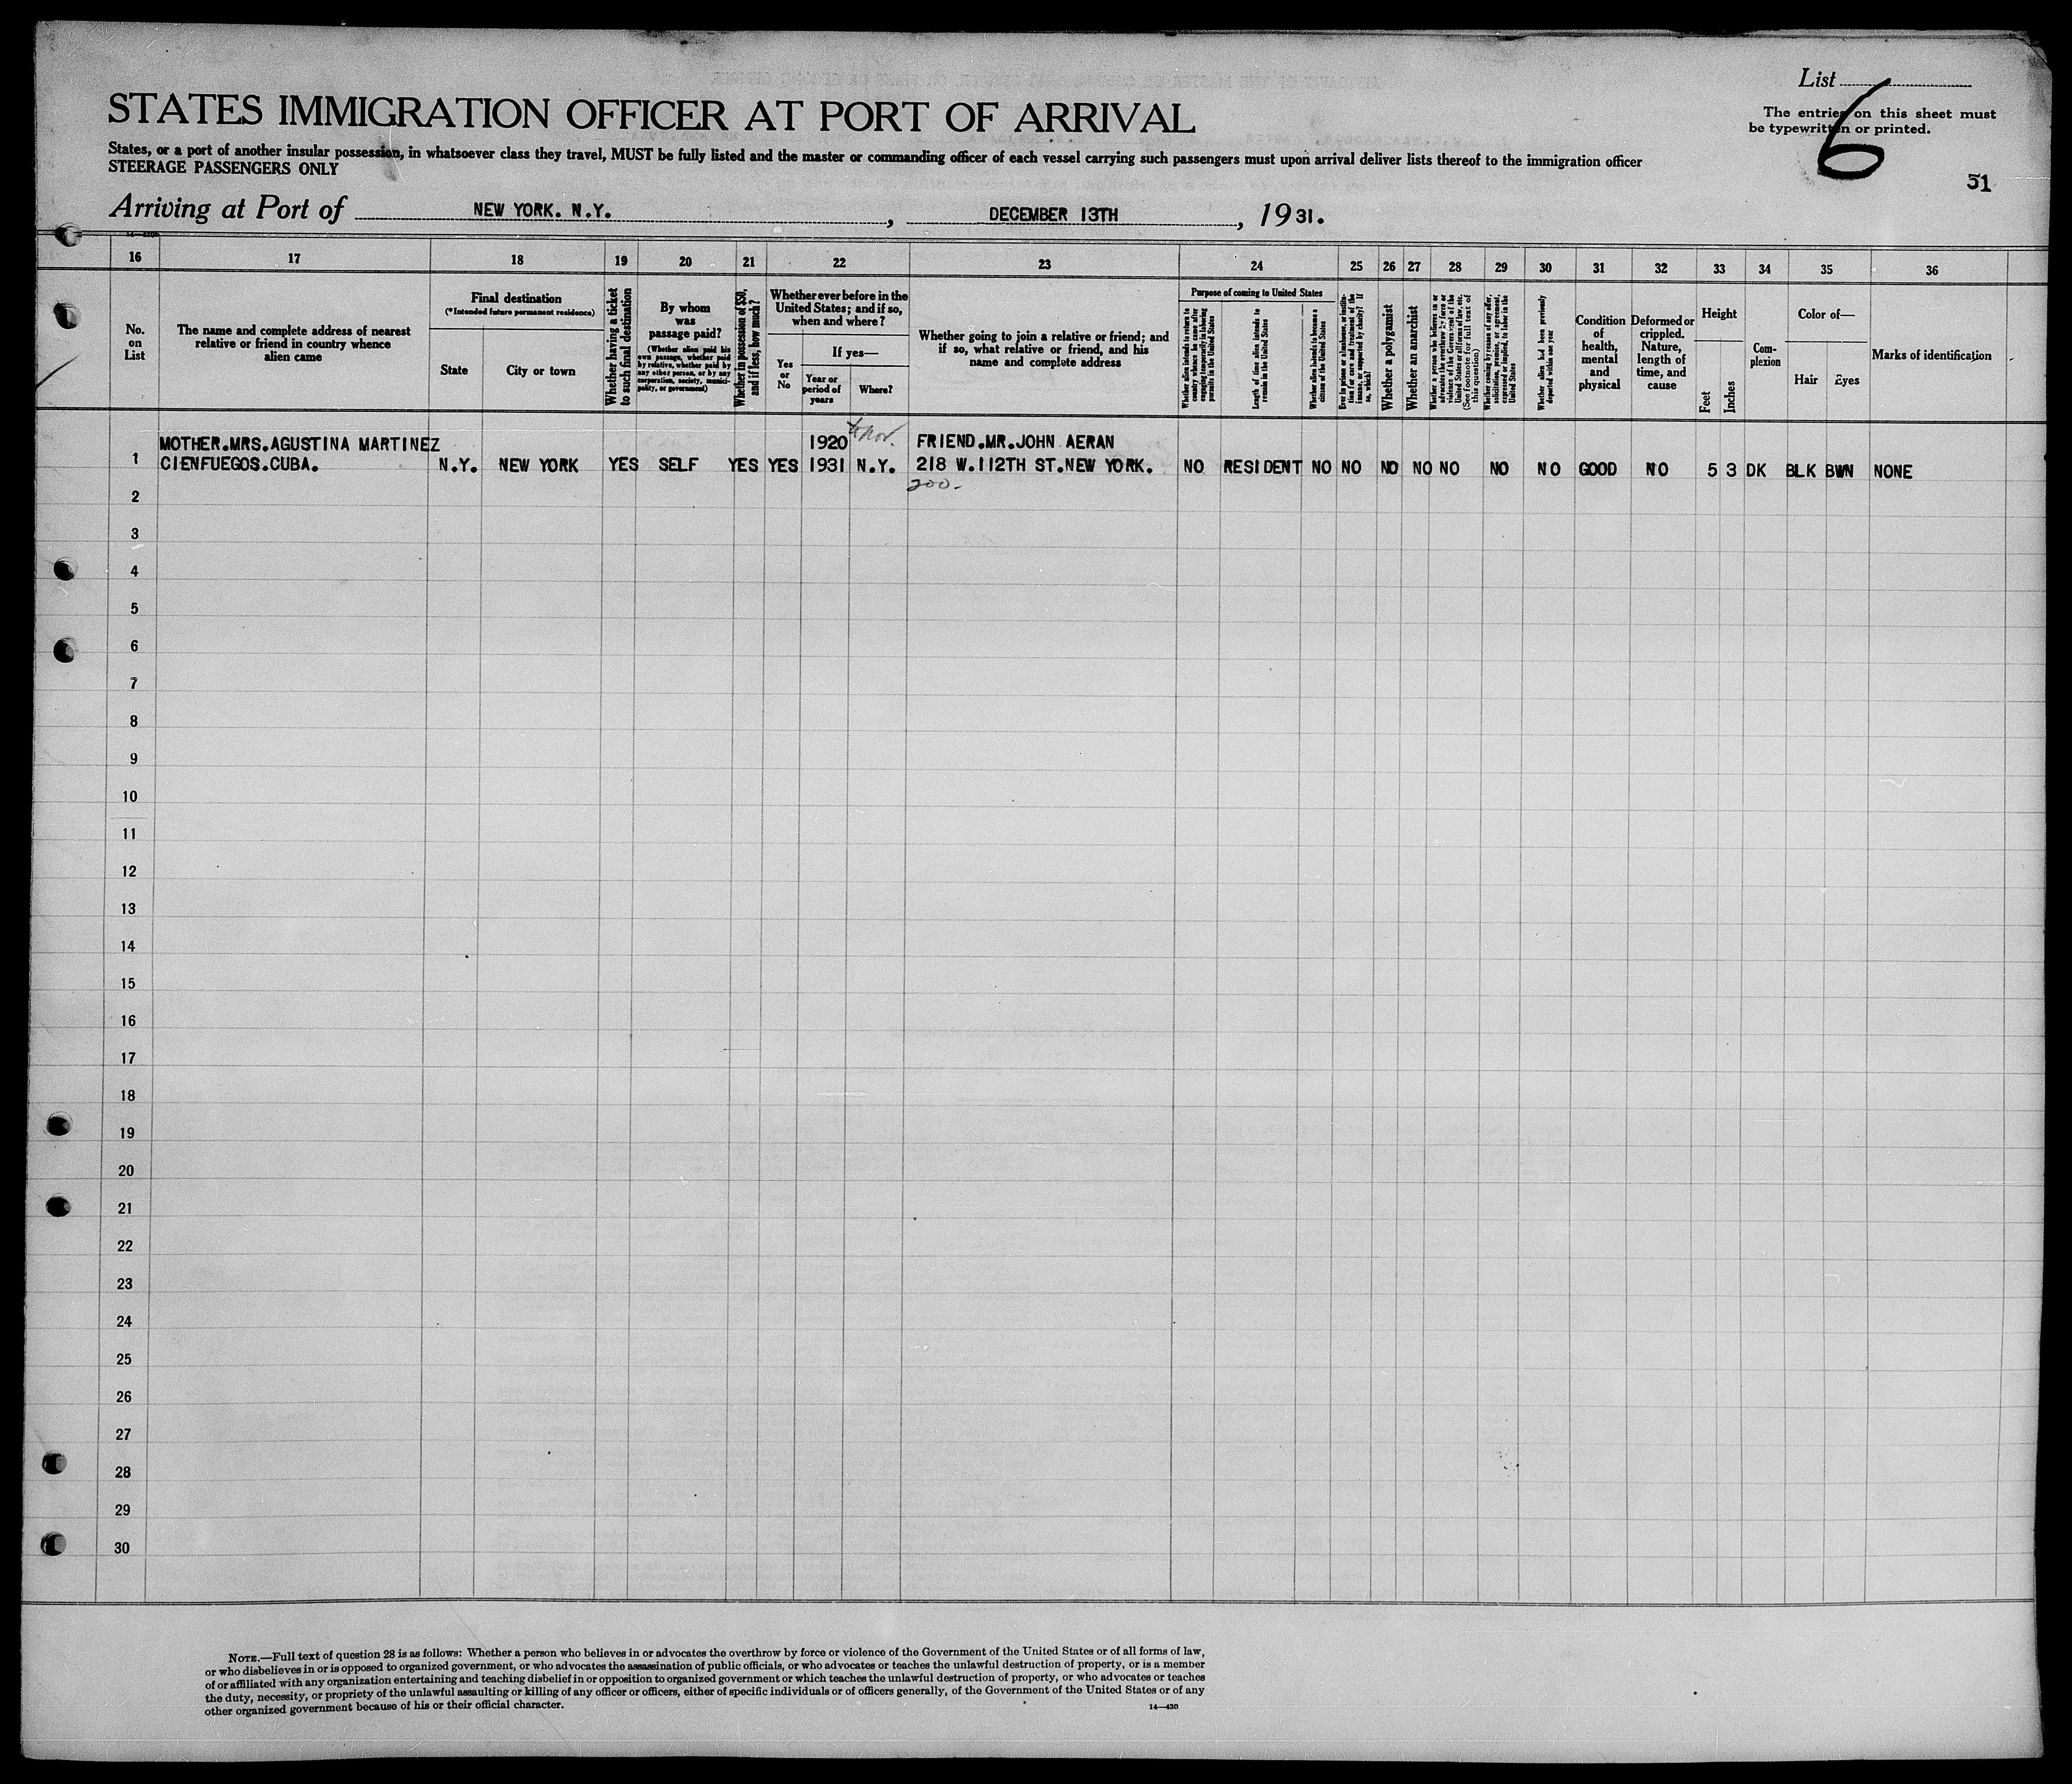 List
The entries on this sheet must
be typewritten or printed.
6
51
STATES IMMIGRATION OFFICER AT PORT OF ARRIVAL
States, or a port of another insular possession, in whatsoever class they travel, MUST be fully listed and the master or commanding officer of each vessel carrying such passengers must upon arrival deliver lists thereof to the immigration officer
STEERAGE PASSENGERS ONLY
Arriving at Port of NEW YORK. N.Y. , DECEMBER 13TH , 1931.
16 17 18 19 20 21 22 23 24 25 26 27 28 29 30 31 32 33 34 35 36
No.
on
List
The name and complete address of nearest
relative or friend in country whence
alien came
Final destination
(*Intended future permanent residence)
State
City or town
Whether having a ticket
to such final destination
By whom
was
passage paid?
(Whether alien paid his
own passage, whether paid
by relative, whether paid by
any other person, or by any
corporation, society, munici-
pality, or government)
Whether in possession of $50,
and if less, how much?
Whether ever before in the
United States; and if so,
when and where?
Yes
or
No
If yes—
Year or
period of
years
Where?
Whether going to join a relative or friend; and
if so, what relative or friend, and his
name and complete address
Purpose of coming to United States
Whether alien intends to return to
country whence he came after
engaging temporarily in laboring
pursuits in the United States
Length of time alien intends to
remain in the United States
Whether alien intends to become a
citizen of the United States
Ever in prison or almshouse, or institu-
tion for care and treatment of the
insane, or supported by charity? If
so, which?
Whether a polygamist
Whether an anarchist
Whether a person who believes in or
advocates the overthrow by force or
violence of the Government of the
United States or all forms of law, etc.
(See footnote for full text of
this question)
Whether coming by reason of any offer,
solicitation, promise, or agreement,
expressed or implied, to labor in the
United States
Whether alien had been previously
deported within one year
Condition
of
health,
mental
and
physical
Deformed or
crippled.
Nature,
length of
time, and
cause
Height
Feet
Inches
Com-
plexion
Color of—
Hair
Eyes
Marks of identification
MOTHER.MRS.AGUSTINA MARTINEZ 1920 Nov. FRIEND.MR.JOHN AERAN
1 CIENFUEGOS.CUBA. N.Y. NEW YORK YES SELF YES YES 1931 N.Y. 218 W.112TH ST.NEW YORK. NO RESIDENT NO NO NO NO NO NO NO GOOD NO 5 3 DK BLK BWN NONE
200-
2
3
4
5
6
7
8
9
10
11
12
13
14
15
16
17
18
19
20
21
22
23
24
25
26
27
28
29
30
NOTE.—Full text of question 28 is as follows: Whether a person who believes in or advocates the overthrow by force or violence of the Government of the United States or of all forms of law,
or who disbelieves in or is opposed to organized government, or who advocates the assassination of public officials, or who advocates or teaches the unlawful destruction of property, or is a member
of or affiliated with any organization entertaining and teaching disbelief in or opposition to organized government or which teaches the unlawful destruction of property, or who advocates or teaches
the duty, necessity, or propriety of the unlawful assaulting or killing of any officer or officers, either of specific individuals or of officers generally, of the Government of the United States or of any
other organized government because of his or their official character.
14—430